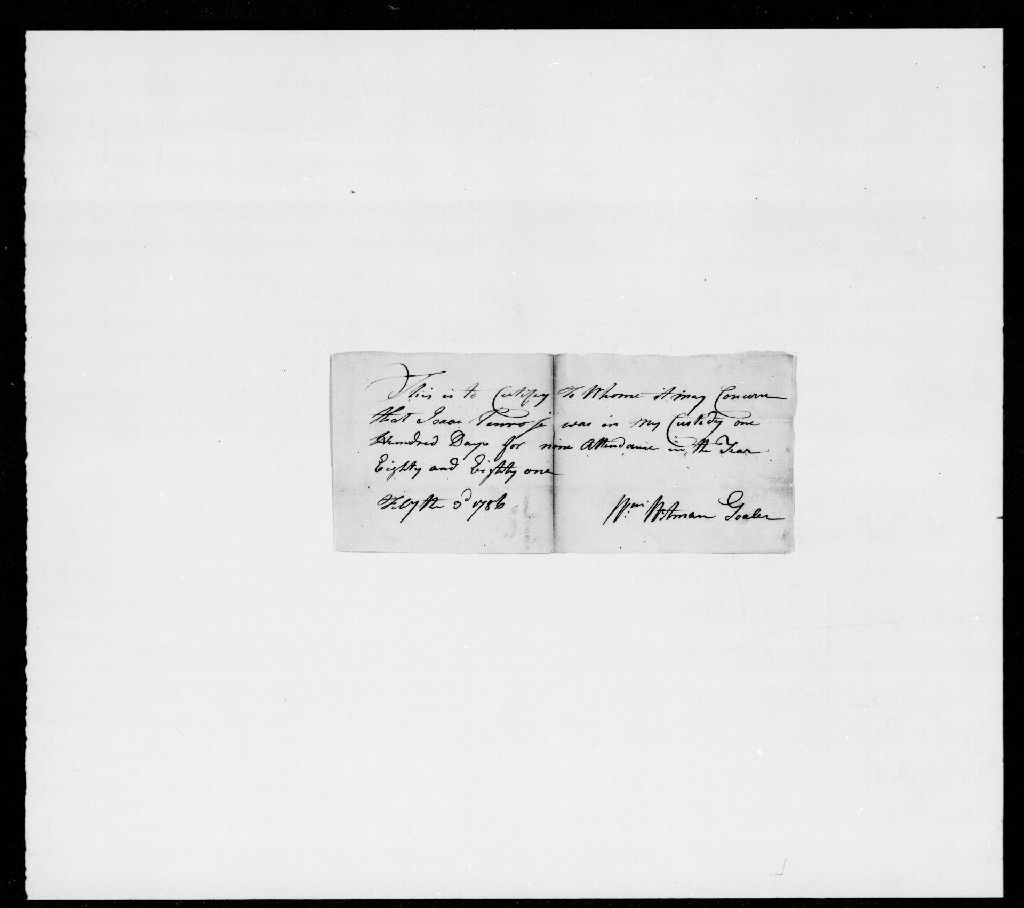 This is to Certifey To Whome it may Concern
that Isaac was in my Custody one
Hundred Days for none Attendance in the Year
Eighty and Eighty one
3d 1786 Wm Witman Goaler